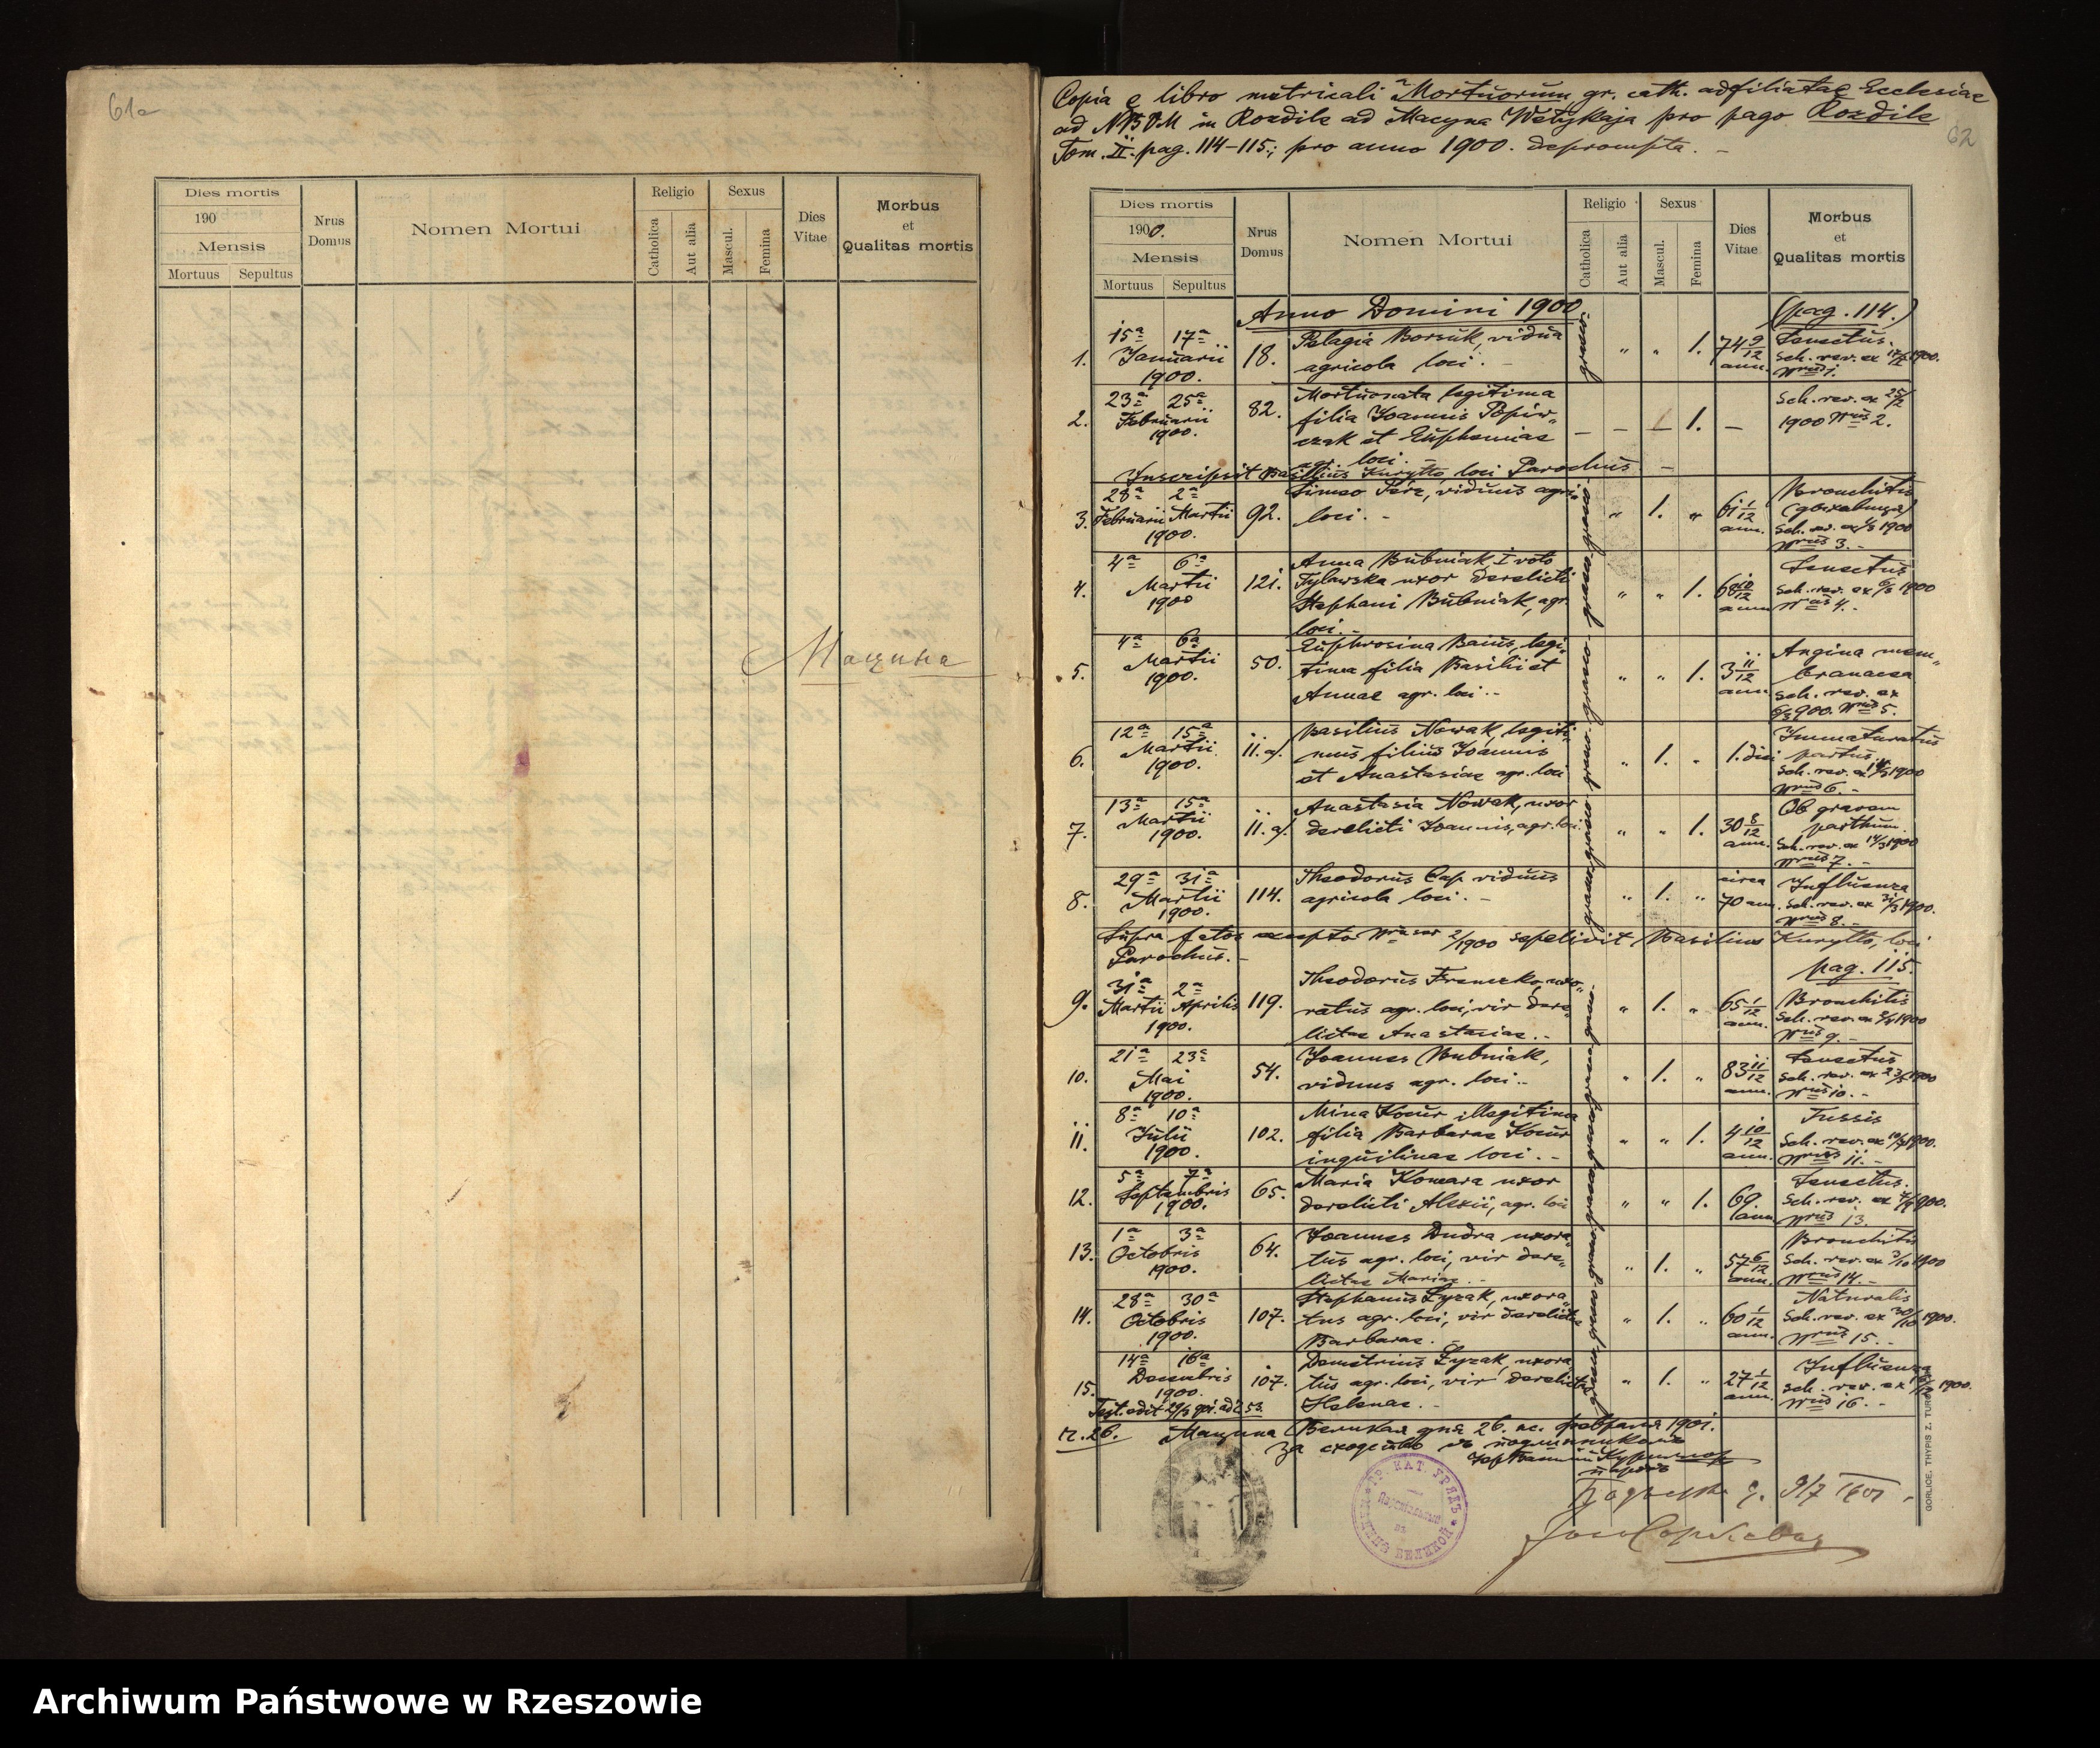 61a
Dies mortis
190
Mensis
Mortuus Sepultus
Nrus Domus
Nomen Mortui
Religio
Catholica
Aut alia
Sexus
Mascul.
Femina
Dies Vitae
Morbus et Qualitas mortis
Мацина
Copia e libro metricali Mortuorum gr. cath. adfiliatae Ecclesiae
ad NBVM in Rozdile ad Macyna Wełykaja pro pago Rozdile
Tom. II. pag. 114-115; pro anno 1900. deprompta. -
62
Dies mortis
1900.
Mensis
Mortuus Sepultus
Nrus Domus
Nomen Mortui
Religio
Catholica
Aut alia
Sexus
Mascul.
Femina
Dies Vitae
Morbus et Qualitas mortis
Anno Domini 1900
(pag. 114.)
1. 15a 17a Januarii 1900. 18. Pelagia Borsuk, vidua
agricola loci. - " " 1. 74 9/12 ann. Senectus.
Sch. rev. ex 1900. Nrus 1.
2. 23a 25a Februarii 1900. 82. Mortuonata legitima
filia Joannis Popiw-
czak et Euphemiae
agr. loci. - 1. - Sch. rev. ex 25/2
1900 Nrus 2.
Inscripsit Basilius Kuryłło loci Parochus. -
3. 28a Februarii 2a Martii 1900. 92. Simeo Ferc, viduus agr.
loci. - " 1. " 61 1/12 ann. Bronchitis
Sch. rev. ex 1/3 1900
Nrus 3. -
4. 4a 6a Martii 1900 121. Anna Bubniak I voto
Tylawska uxor derelicti
Stephani Bubniak, agr.
loci. - " " 1. 68 10/12 ann. Senectus
Sch. rev. ex 6/3 1900
Nrus 4. -
5. 4a 6a Martii 1900. 50. Euphrosina Baius, legi-
tima filia Basilii et
Annae agr. loci. - " " 1. 3 11/12 ann. Angina mem-
branacea
Sch. rev. ex
6/3 900. Nrus 5.
6. 12a 15a Martii 1900. 11.a/. Basilius Nowak, legiti-
mus filius Joannis
et Anastasiae agr. loci " 1. " 1. diei Immaturatus
partus.
Sch. rev. ex 14/3 1900
Nrus 6. -
7. 13a 15a Martii 1900. 11.a/. Anastasia Nowak, uxor
derelicti Joannis, agr. loci. " " 1. 30 8/12 ann. Ob gravem
parthum.
Sch. rev. ex 14/3 1900
Nrus 7. -
8. 29a 31a Martii 1900. 114. Theodorus Cap viduus
agricola loci. - " 1. " circa 70 ann. Influenza
Sch. rev. ex 31/3 1900.
Nrus 8. -
Supra fatos excepto Nro ser 2/1900 sepelivit Basilius Kuryłło, loci
Parochus. -
pag. 115.
9. 31a Martii 2a Aprilis 1900. 119. Theodorus Frencko, uxo-
ratus agr. loci, vir dere-
lictae Anastasiae. - " 1. " 65 1/12 ann. Bronchitis
Sch. rev. ex 2/4 1900
Nrus 9. -
10. 21a 23a Mai 1900. 54. Joannes Bubniak,
viduus agr. loci. - " 1. " 83 11/12 ann. Senectus
Sch. rev. ex 23/5 1900
Nrus 10. -
11. 8a 10a Julii 1900. 102. Mina Kocur illegitima
filia Barbarae Kocur
inquilinae loci. - " " 1. 4 10/12 ann. Tussis
Sch. rev. ex 10/7 1900.
Nrus 11. -
12. 5a 7a Septembris 1900. 65. Maria Komara uxor
derelicti Alexii, agr. loci " " 1. 69. ann. Senectus.
Sch. rev. ex 7/9 900.
Nrus 13.
13. 1a 3a Octobris 1900. 64. Joannes Dudra uxora-
tus agr. loci, vir dere-
lictae Mariae. - " 1. " 57 6/12 ann. Bronchitis
Sch. rev. ex 3/10 1900
Nrus 14. -
14. 28a 30a Octobris 1900. 107. Stephanus Łyzak, uxora-
tus agr. loci, vir derelictae
Barbarae. - " 1. " 60 1/12 ann. Naturalis
Sch. rev. ex 30/10 1900.
Nrus 15. -
15. 14a 16a Decembris 1900. 107. Demetrius Łyzak, uxora-
tus agr. loci, vir derelictae
Helenae. - " 1. " 27 1/12 ann. Influenza
Sch. rev. ex 1900.
Nrus 16. -
Мацина Великая дня 26. нс. февраля 1901.
за сходство
ГР. КАТ. УРЯДЪ
GORLICE, THYPIS Z. TUR
Archiwum Państwowe w Rzeszowie